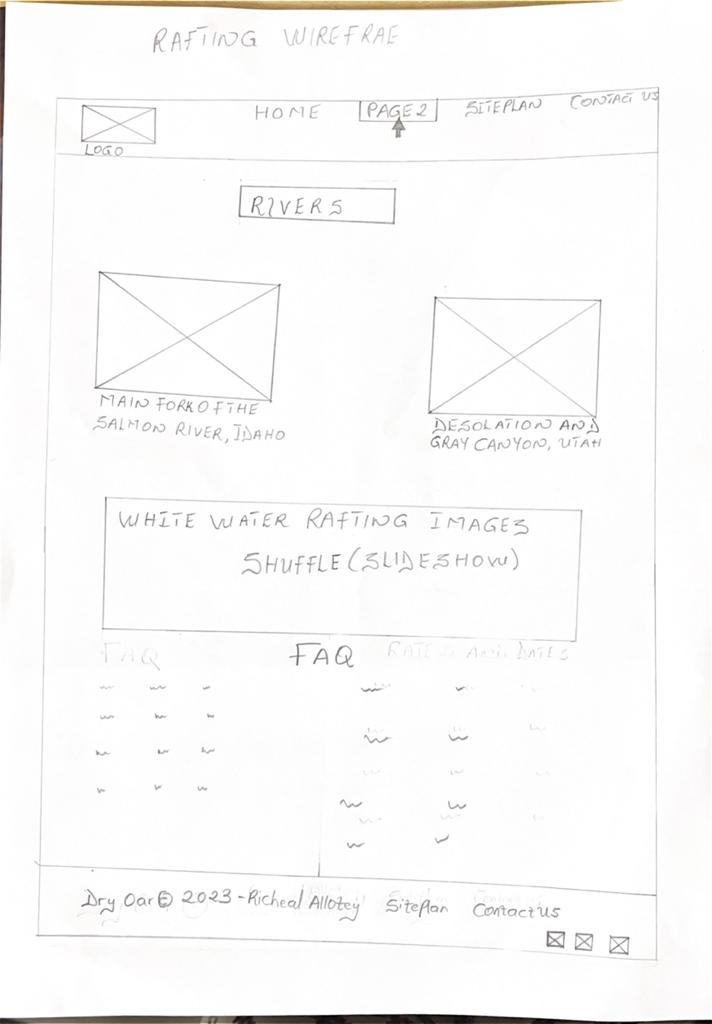 RAFTING WIREFRAE
HOME PAGE 2 SITEPLAN CONTACT US
LOGO
RIVERS
MAIN FORK OF THE
SALMON RIVER, IDAHO
DESOLATION AND
GRAY CANYON, UTAH
WHITE WATER RAFTING IMAGES
SHUFFLE (SLIDESHOW)
FAQ FAQ RATES AND DATES
Dry Oar © 2023 - Richeal Allotey SitePlan Contact Us